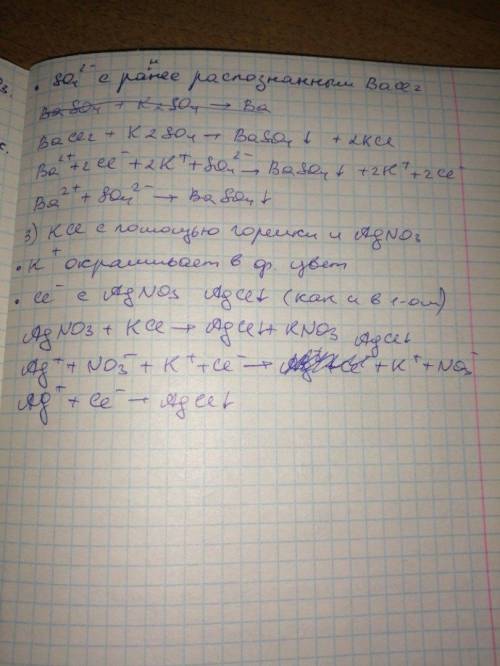 • SO₄²⁻ с ранее распознанным BaCl₂
BaSO₄ + K₂SO₄ → Ba
BaCl₂ + K₂SO₄ → BaSO₄↓ + 2KCl
Ba²⁺ + 2Cl⁻ + 2K⁺ + SO₄²⁻ → BaSO₄↓ + 2K⁺ + 2Cl⁻
Ba²⁺ + SO₄²⁻ → BaSO₄↓
3) KCl с помощью горелки и AgNO₃
• K⁺ окрашивает в ф. цвет
• Cl⁻ с AgNO₃ AgCl↓ (как и в 1-ом)
AgNO₃ + KCl → AgCl↓ + KNO₃
Ag⁺ + NO₃⁻ + K⁺ + Cl⁻ → AgCl↓ + K⁺ + NO₃⁻
Ag⁺ + Cl⁻ → AgCl↓